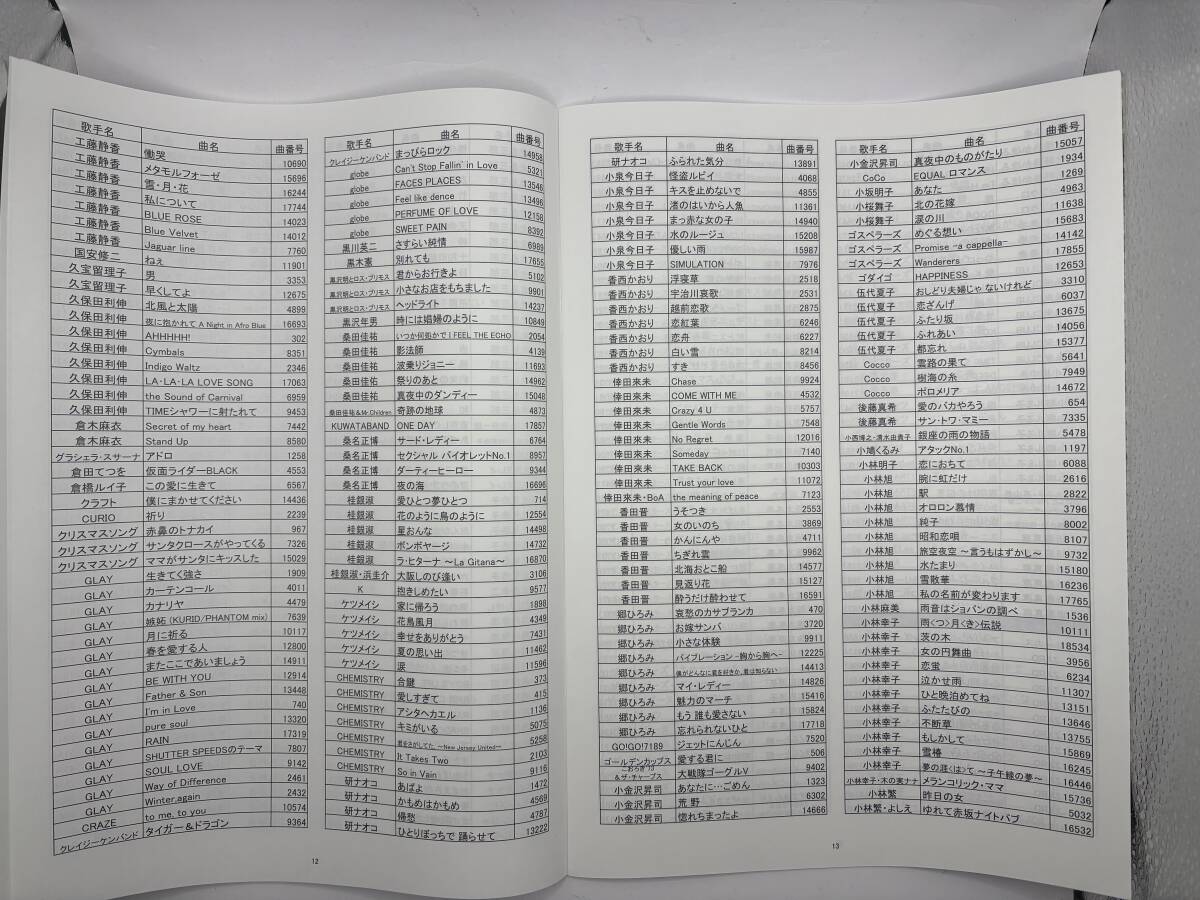 歌手名 曲名 曲番号
工藤静香 慟哭 10690
工藤静香 メタモルフォーゼ 15696
工藤静香 雪・月・花 16244
工藤静香 私について 17744
工藤静香 BLUE ROSE 14023
工藤静香 Blue Velvet 14012
工藤静香 Jaguar line 7760
国安修二 ねぇ 11901
久宝留理子 男 3353
久宝留理子 早くしてよ 12675
久保田利伸 北風と太陽 4899
久保田利伸 夜に抱かれて A Night in Afro Blue 16693
久保田利伸 AHHHHH! 302
久保田利伸 Cymbals 8351
久保田利伸 Indigo Waltz 2346
久保田利伸 LA・LA・LA LOVE SONG 17063
久保田利伸 the Sound of Carnival 6959
久保田利伸 TIMEシャワーに射たれて 9453
倉木麻衣 Secret of my heart 7442
倉木麻衣 Stand Up 8580
グラシェラ・スサーナ アドロ 1258
倉田てつを 仮面ライダーBLACK 4553
倉橋ルイ子 この愛に生きて 6567
クラフト 僕にまかせてください 14436
CURIO 祈り 2239
クリスマスソング 赤鼻のトナカイ 967
クリスマスソング サンタクロースがやってくる 7326
クリスマスソング ママがサンタにキッスした 15029
GLAY 生きてく強さ 1909
GLAY カーテンコール 4011
GLAY カナリヤ 4479
GLAY 嫉妬 (KURID/PHANTOM mix) 7639
GLAY 月に祈る 10117
GLAY 春を愛する人 12800
GLAY またここであいましょう 14911
GLAY BE WITH YOU 12914
GLAY Father & Son 13448
GLAY I'm in Love 740
GLAY pure soul 13320
GLAY RAIN 17319
GLAY SHUTTER SPEEDSのテーマ 7807
GLAY SOUL LOVE 9142
GLAY Way of Difference 2461
GLAY Winter,again 2432
CRAZE to me, to you 10574
クレイジーケンバンド タイガー&ドラゴン 9364
歌手名 曲名 曲番号
クレイジーケンバンド まっぴらロック 14958
globe Can't Stop Fallin' in Love 5321
globe FACES PLACES 13546
globe Feel like dence 13496
globe PERFUME OF LOVE 12156
globe SWEET PAIN 8392
黒川英二 さすらい純情 6989
黒木憲 別れても 17655
黒沢明とロス・プリモス 君からお行きよ 5102
黒沢明とロス・プリモス 小さなお店をもちました 9901
黒沢明とロス・プリモス ヘッドライト 14237
黒沢年男 時には娼婦のように 10849
桑田佳祐 いつか何処かで I FEEL THE ECHO 2054
桑田佳祐 影法師 4139
桑田佳祐 波乗りジョニー 11693
桑田佳祐 祭りのあと 14962
桑田佳祐 真夜中のダンディー 15048
桑田佳祐&Mr.Children 奇跡の地球 4873
KUWATABAND ONE DAY 17857
桑名正博 サード・レディー 6764
桑名正博 セクシャル バイオレットNo.1 8957
桑名正博 ダーティーヒーロー 9344
桑名正博 夜の海 16696
桂銀淑 愛ひとつ夢ひとつ 714
桂銀淑 花のように鳥のように 12554
桂銀淑 星おんな 14498
桂銀淑 ボンボヤージ 14732
桂銀淑 ラ・ヒターナ ~La Gitana~ 16870
桂銀淑・浜圭介 大阪しのび逢い 3106
K 抱きしめたい 9577
ケツメイシ 家に帰ろう 1898
ケツメイシ 花鳥風月 4349
ケツメイシ 幸せをありがとう 7431
ケツメイシ 夏の思い出 11462
ケツメイシ 涙 11596
CHEMISTRY 合鍵 373
CHEMISTRY 愛しすぎて 415
CHEMISTRY アシタヘカエル 1136
CHEMISTRY キミがいる 5075
CHEMISTRY 君をさがしてた ~New Jersey United~ 5258
CHEMISTRY It Takes Two 2103
CHEMISTRY So in Vain 9116
研ナオコ あばよ 1472
研ナオコ かもめはかもめ 4569
研ナオコ 帰愁 4787
研ナオコ ひとりぼっちで 踊らせて 13222
12
歌手名 曲名 曲番号
研ナオコ ふられた気分 13891
小泉今日子 怪盗ルビイ 4068
小泉今日子 キスを止めないで 4855
小泉今日子 渚のはいから人魚 11361
小泉今日子 まっ赤な女の子 14940
小泉今日子 水のルージュ 15208
小泉今日子 優しい雨 15987
小泉今日子 SIMULATION 7976
香西かおり 浮寝草 2518
香西かおり 宇治川哀歌 2531
香西かおり 越前恋歌 2875
香西かおり 恋紅葉 6246
香西かおり 恋舟 6227
香西かおり 白い雪 8214
香西かおり すき 8456
倖田來未 Chase 9924
倖田來未 COME WITH ME 4532
倖田來未 Crazy 4 U 5757
倖田來未 Gentle Words 7548
倖田來未 No Regret 12016
倖田來未 Someday 7140
倖田來未 TAKE BACK 10303
倖田來未 Trust your love 11072
倖田來未・BoA the meaning of peace 7123
香田晋 うそつき 2553
香田晋 女のいのち 3869
香田晋 かんにんや 4711
香田晋 ちぎれ雲 9962
香田晋 北海おとこ船 14577
香田晋 見返り花 15127
香田晋 酔うだけ酔わせて 16591
郷ひろみ 哀愁のカサブランカ 470
郷ひろみ お嫁サンバ 3720
郷ひろみ 小さな体験 9911
郷ひろみ バイブレーション -胸から胸へ- 12225
郷ひろみ 僕がどんなに君を好きか、君は知らない 14413
郷ひろみ マイ・レディー 14826
郷ひろみ 魅力のマーチ 15416
郷ひろみ もう 誰も愛さない 15824
郷ひろみ 忘れられないひと 17718
GO!GO!7189 ジェットにんじん 7520
ゴールデンカップス 愛する君に 506
こおろぎ'73&ザ・チャープス 大戦隊ゴーグルV 9402
小金沢昇司 あなたに…ごめん 1323
小金沢昇司 荒 野 6302
小金沢昇司 惚れちまったよ 14666
歌手名 曲名 曲番号
小金沢昇司 真夜中のものがたり 15057
CoCo EQUAL ロマンス 1934
小坂明子 あなた 1269
小桜舞子 北の花嫁 4963
小桜舞子 涙の川 11638
ゴスペラーズ めぐる想い 15683
ゴスペラーズ Promise -a cappella- 14142
ゴスペラーズ Wanderers 17855
ゴダイゴ HAPPINESS 12653
伍代夏子 おしどり夫婦じゃ ないけれど 3310
伍代夏子 恋ざんげ 6037
伍代夏子 ふたり坂 13675
伍代夏子 ふれあい 14056
伍代夏子 都忘れ 15377
Cocco 雲路の果て 5641
Cocco 樹海の糸 7949
Cocco ポロメリア 14672
後藤真希 愛のバカやろう 654
後藤真希 サン・トワ・マミー 7335
小西博之・清水由貴子 銀座の雨の物語 5478
小鳩くるみ アタックNo.1 1197
小林明子 恋におちて 6088
小林旭 腕に虹だけ 2616
小林旭 駅 2822
小林旭 オロロン慕情 3796
小林旭 純子 8002
小林旭 昭和恋唄 8107
小林旭 旅空夜空 ~言うもはずかし~ 9732
小林旭 水たまり 15180
小林旭 雪散華 16236
小林旭 私の名前が変わります 17765
小林麻美 雨音はショパンの調べ 1536
小林幸子 雨<つ>月<き>伝説 10111
小林幸子 茨の木 18534
小林幸子 女の円舞曲 3956
小林幸子 恋蛍 6234
小林幸子 泣かせ雨 11307
小林幸子 ひと晩泊めてね 13151
小林幸子 ふたたびの 13646
小林幸子 不断草 13755
小林幸子 もしかして 15869
小林幸子 雪椿 16245
小林幸子 夢の涯<は>て ~子午線の夢~ 16446
小林幸子・木の実ナナ メランコリック・ママ 15736
小林繁 昨日の女 5032
小林繁・よしえ ゆれて赤坂ナイトパブ 16532
13